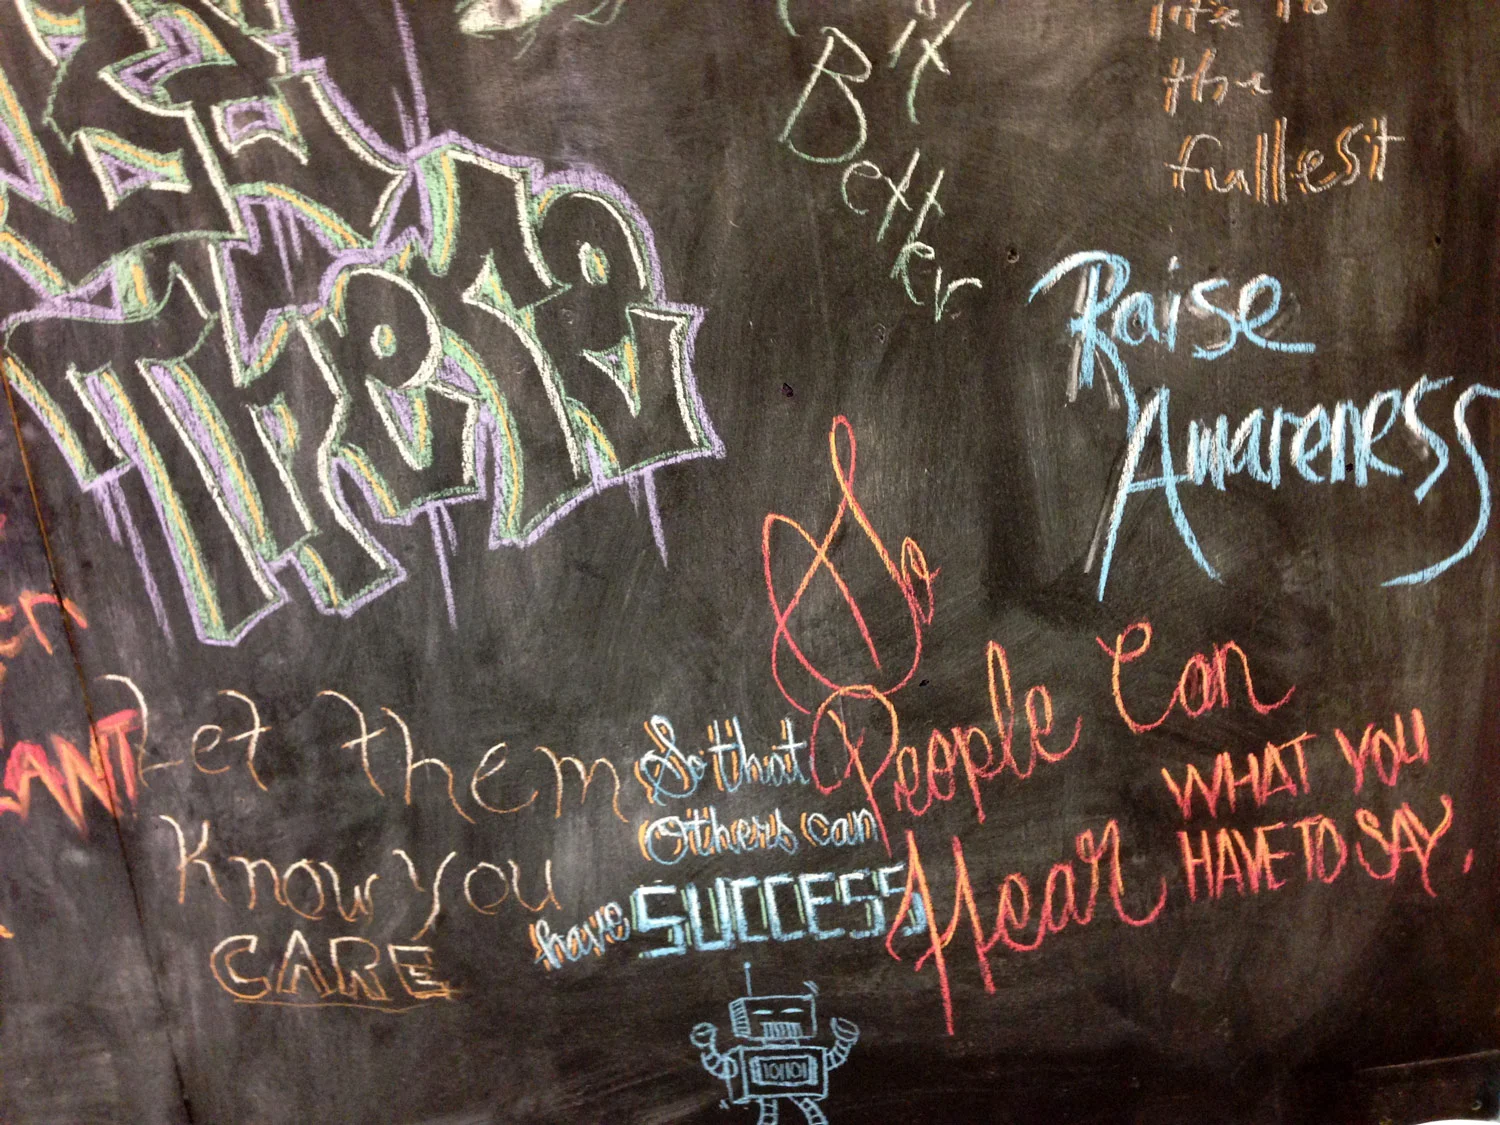 it
Better
the
fullest
THERE
Raise
Awareness
Let them
Know you
CARE
So that
Others can
have SUCCESS
101101
So
People Can
Hear WHAT YOU
HAVE TO SAY.